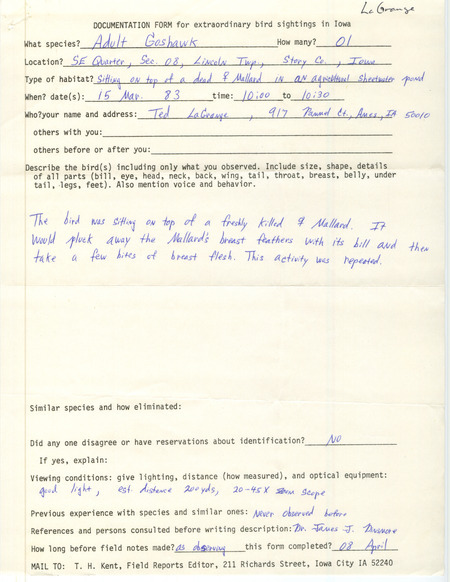 LaGrange
DOCUMENTATION FORM for extraordinary bird sightings in Iowa
What species? Adult Goshawk How many? 01
Location? SE Quarter, Sec. 08, Lincoln Twp., Story Co., Iowa
Type of habitat? Sitting on top of a dead ♀ Mallard in an agricultural sheetwater pond
When? date(s): 15 Mar. 83 time: 10:00 to 10:30
Who? your name and address: Ted LaGrange, 917 Pammel Ct., Ames, IA 50010
others with you:
others before or after you:
Describe the bird(s) including only what you observed. Include size, shape, details
of all parts (bill, eye, head, neck, back, wing, tail, throat, breast, belly, under
tail, legs, feet). Also mention voice and behavior.
The bird was sitting on top of a freshly killed ♀ Mallard. It
would pluck away the Mallard's breast feathers with its bill and then
take a few bites of breast flesh. This activity was repeated.
Similar species and how eliminated:
Did any one disagree or have reservations about identification? NO
If yes, explain:
Viewing conditions: give lighting, distance (how measured), and optical equipment:
good light, est. distance 200 yds, 20-45X scope
Previous experience with species and similar ones: Never observed before
References and persons consulted before writing description: Dr. James J. Dinsmore
How long before field notes made? as observing this form completed? 08 April
MAIL TO: T. H. Kent, Field Reports Editor, 211 Richards Street, Iowa City IA 52240